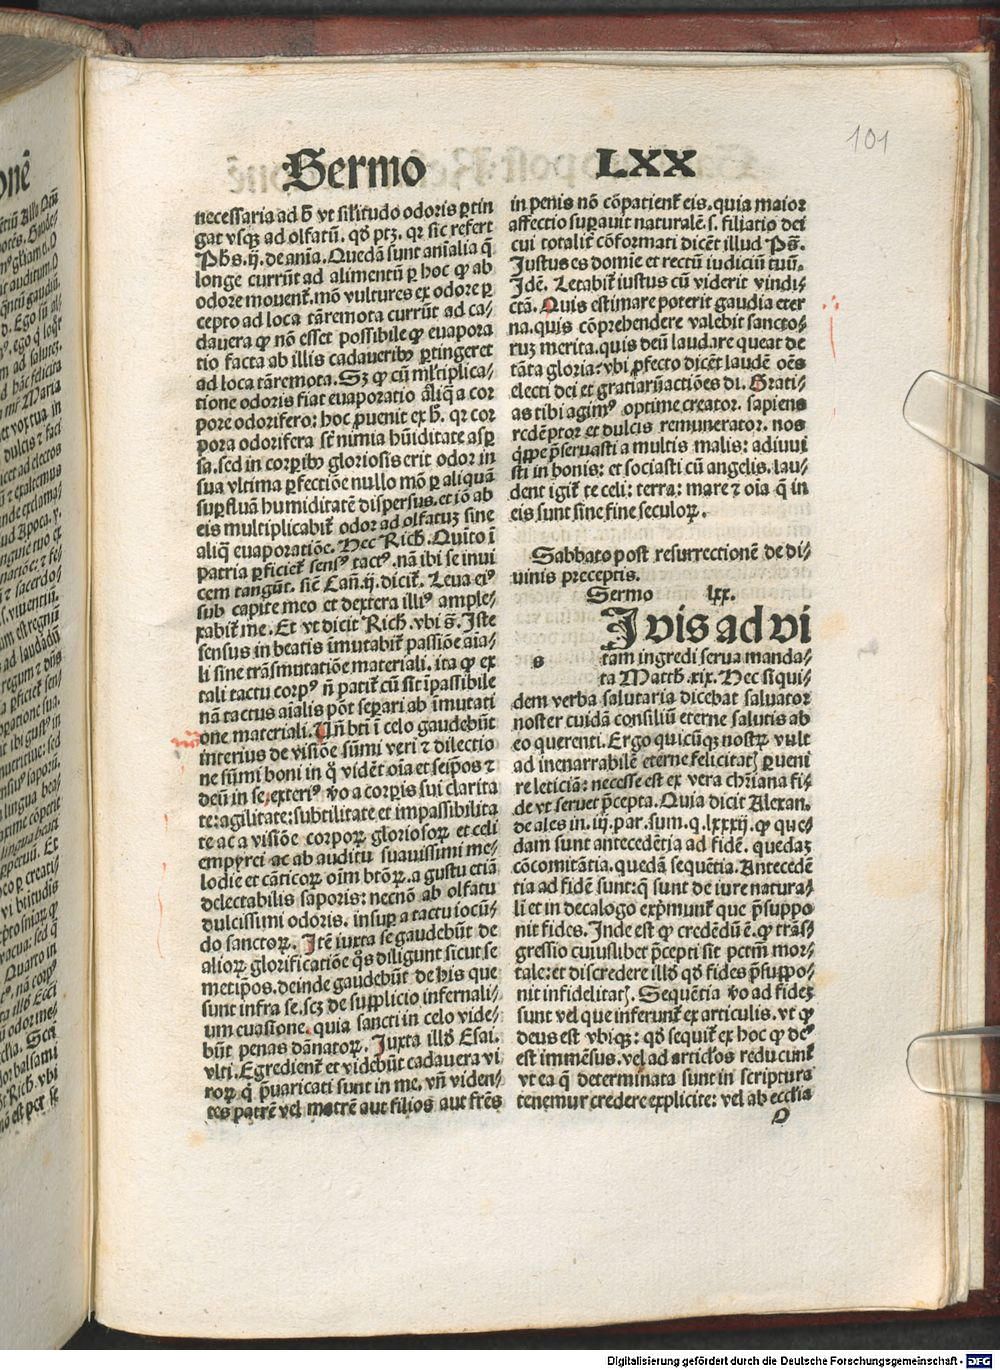 101
Sermo LXX
necessaria ad h̄ vt silitudo odoris ꝑtin
gat vsqꝫ ad olfatū. qđ ptꝫ. qꝛ sic refert
Ph̄s.ij. de anīa. Quedā sunt anīalia q̄
longe currūt ad alimentū ꝑ hoc ꝙ ab
odore mouent̄. mō vultures ex odore ꝑ
cepto ad loca tāremota currūt ad ca⸗
dauera ꝙ nō esset possibile ꝙ euapora
tio facta ab illis cadaueribꝰ ꝑtingeret
ad loca tāremota. Sꝫ ꝙ cū ml̄tiplica⸗
tione odoris fiat euaporatio āliq̄ a cor
pore odorifero: hoc ꝓuenit ex h̄. qꝛ cor
pora odorifera sn̄t nimia hūiditate asꝑ
sa. sed in corꝑibꝰ gloriosis erit odor in
sua vltima ꝑfectiōe nullo mō ꝑ aliquā
suꝑfluā humiditatē dispersus. et iō ab
eis multiplicabit̄ odor ad olfatuꝫ sine
aliq̄ euaporatiōe. Hec Rich. Quīto ī
patria ꝑficiet̄ sensꝰ tactꝰ. nā ibi se inui
cem tangūt. sicut̄ Cañ.ij. dicit̄. Leua eiꝰ
sub capite meo et dextera illiꝰ ample⸗
xabit̄ me. Et vt dicit Rich. vbi s̄. Iste
sensus in beatis īmutabit̄ passiōe aīa⸗
li sine trāsmutatiōe materiali. ita ꝙ ex
tali tactu corpꝰ nō patit̄ cū sit īpassibile
nā tactus aīalis pōt seꝑari ab īmutati
one materiali. Vn̄ bti ī celo gaudebūt
interius de visiōe sūmi veri ⁊ dilectio
ne sūmi boni in q̊ vidēt oīa et seip̄os ⁊
deū in se. exteriꝰ ꝟo a corꝑis sui clarita
te: agilitate: subtilitate et impassibilita
te ac a visiōe corporꝝ gloriosorꝝ et celi
empyrei ac ab auditu suauissimi me⸗
lodie et cāticorꝝ oīm btōrꝝ. a gustu etiā
delectabilis saporis: necnō ab olfatu
dulcissimi odoris. insuꝑ a tactu iocū⸗
do sanctorꝝ. Itē iuxta se gaudebūt de
aliorꝝ glorificatiōe q̊s diligunt sicut se
metip̄os. deinde gaudebūt de his que
sunt infra se. scꝫ de supplicio infernali⸗
um euasione. quia sancti in celo vide⸗
būt penas dānatorꝝ. Iuxta illđ Esai.
vlti. Egredient̄ et videbūt cadauera vi
rorꝝ q̄ p̄uaricati sunt in me. vñ viden⸗
tes patrē vel matrē aut filios aut fr̄es
in penis nō cōpatient̄ eis. quia maior
affectio suꝑauit naturalē. s. filiatio dei
cui totalit̄ cōformati dicēt illud Ps̄.
Iustus es domie et rectū iudiciū tuū.
Idē. Letabit̄ iustus cū viderit vindi⸗
ctā. Quis estimare poterit gaudia eter
na. quis cōprehendere valebit sancto⸗
ruꝫ merita. quis deū laudare queat de
tāta gloria: vbi ꝓfecto dicēt laudē oēs
electi dei et gratiarūactiōes di. Grati⸗
as tibi agimꝰ optime creator. sapiens
redēptor et dulcis remunerator. nos
q̄ppe p̄seruasti a multis malis: adiuui
sti in bonis: et sociasti cū angelis. lau⸗
dent igit̄ te celi: terra: mare ⁊ oīa q̄ in
eis sunt sine fine seculorꝝ.
Sabbato post resurrectionē de di⸗
uinis preceptis.
Sermo lxx.
s
I vis ad vi
tam ingredi serua manda⸗
ta Matth̄.xix. Hec siqui⸗
dem verba salutaria dicebat saluator
noster cuidā consiliū eterne salutis ab
eo querenti. Ergo quicūqꝫ nostrꝝ vult
ad inenarrabilē eterne felicitatꝭ ꝑueni
re leticiā: necesse est ex vera chr̄iana fi⸗
de vt seruet p̄cepta. Quia dicit Alexan.
de ales in.iij.par.sum.q.lxxxij. ꝙ que⸗
dam sunt antecedētia ad fidē. quedaꝫ
cōcomitātia. quedā sequētia. Antecedē
tia ad fidē sunt: q̄ sunt de iure natura⸗
li et in decalogo exp̄munt̄ que p̄suppo
nit fides. Inde est ꝙ credēdū ē. ꝙ trās⸗
gressio cuiuslibet p̄cepti sit pctm̄ mor⸗
tale: et discredere illđ qđ fides p̄suppo⸗
nit infidelitatꝭ. Sequētia ꝟo ad fideꝫ
sunt vel que inferunt̄ ex articulis. vt ꝙ
deus est vbiqꝫ: qđ sequit̄ ex hoc ꝙ deꝰ
est immēsus. vel ad articl̄os reducunt̄
vt ea q̄ determinata sunt in scriptura
tenemur credere explicite: vel ab eccl̄ia
O
Digitalisierung gefördert durch die Deutsche Forschungsgemeinschaft - DFG